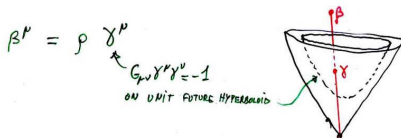 β^μ = ρ γ^μ
G_μν γ^μ γ^ν = -1
ON UNIT FUTURE HYPERBOLOID
β
γ